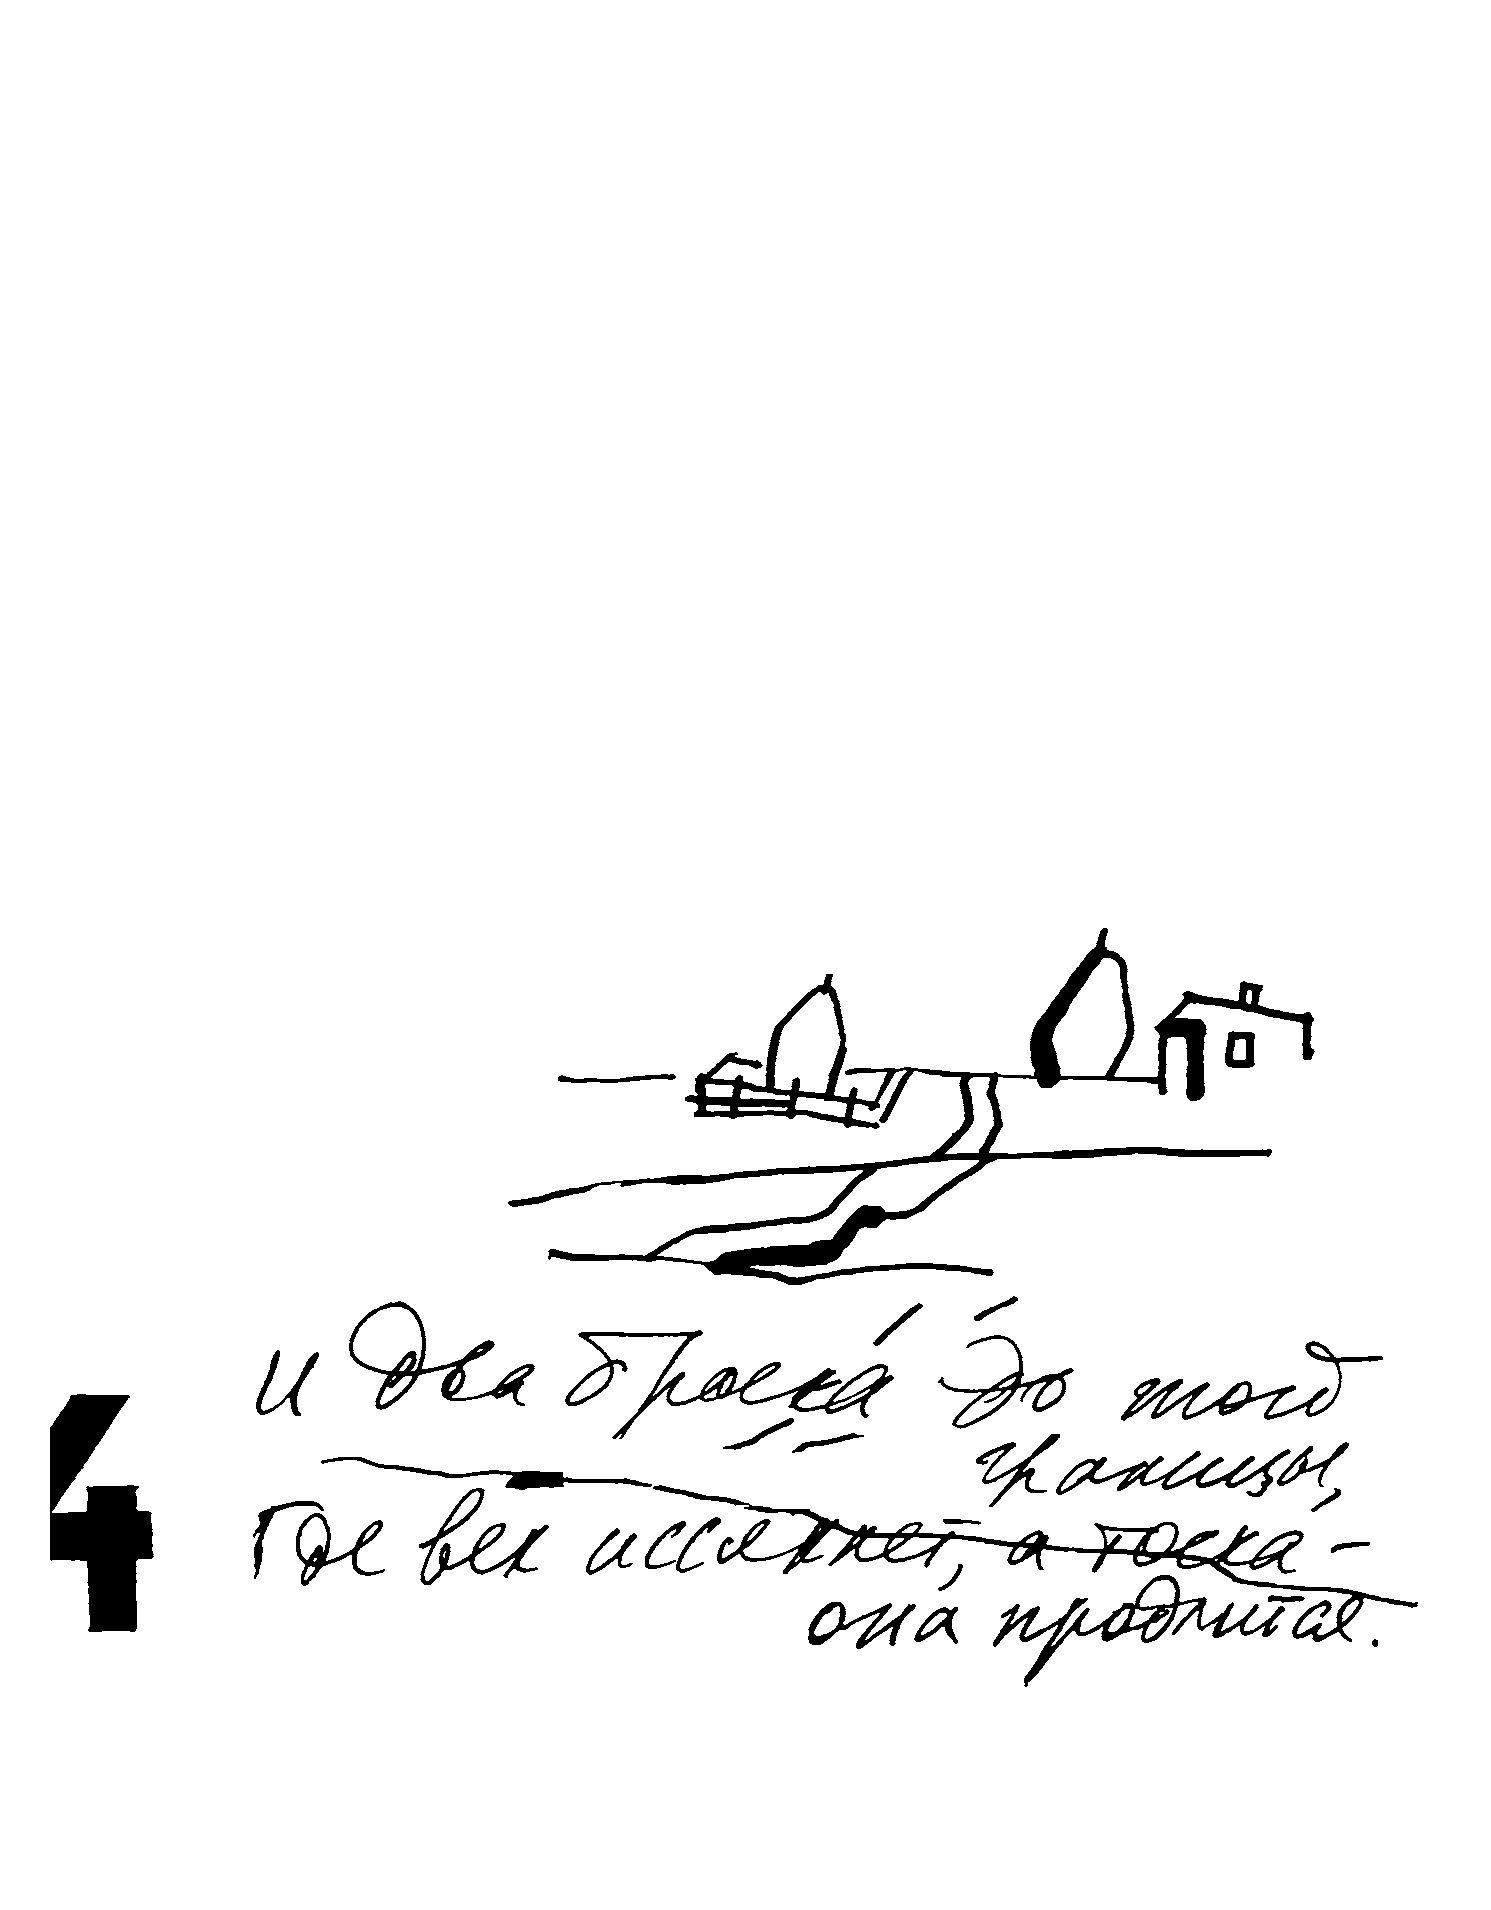 и два броска до той
границы,
4
Где век иссякнет, а тоска –
она продлится.